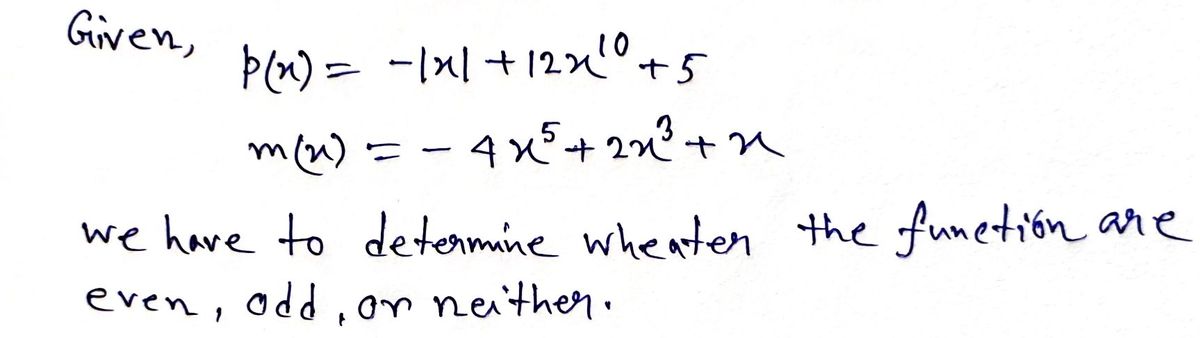 Given,
p(x) = -|x| + 12x^10 + 5
m(x) = - 4x^5 + 2x^3 + x
we have to determine wheater the function are
even, odd, or neither.